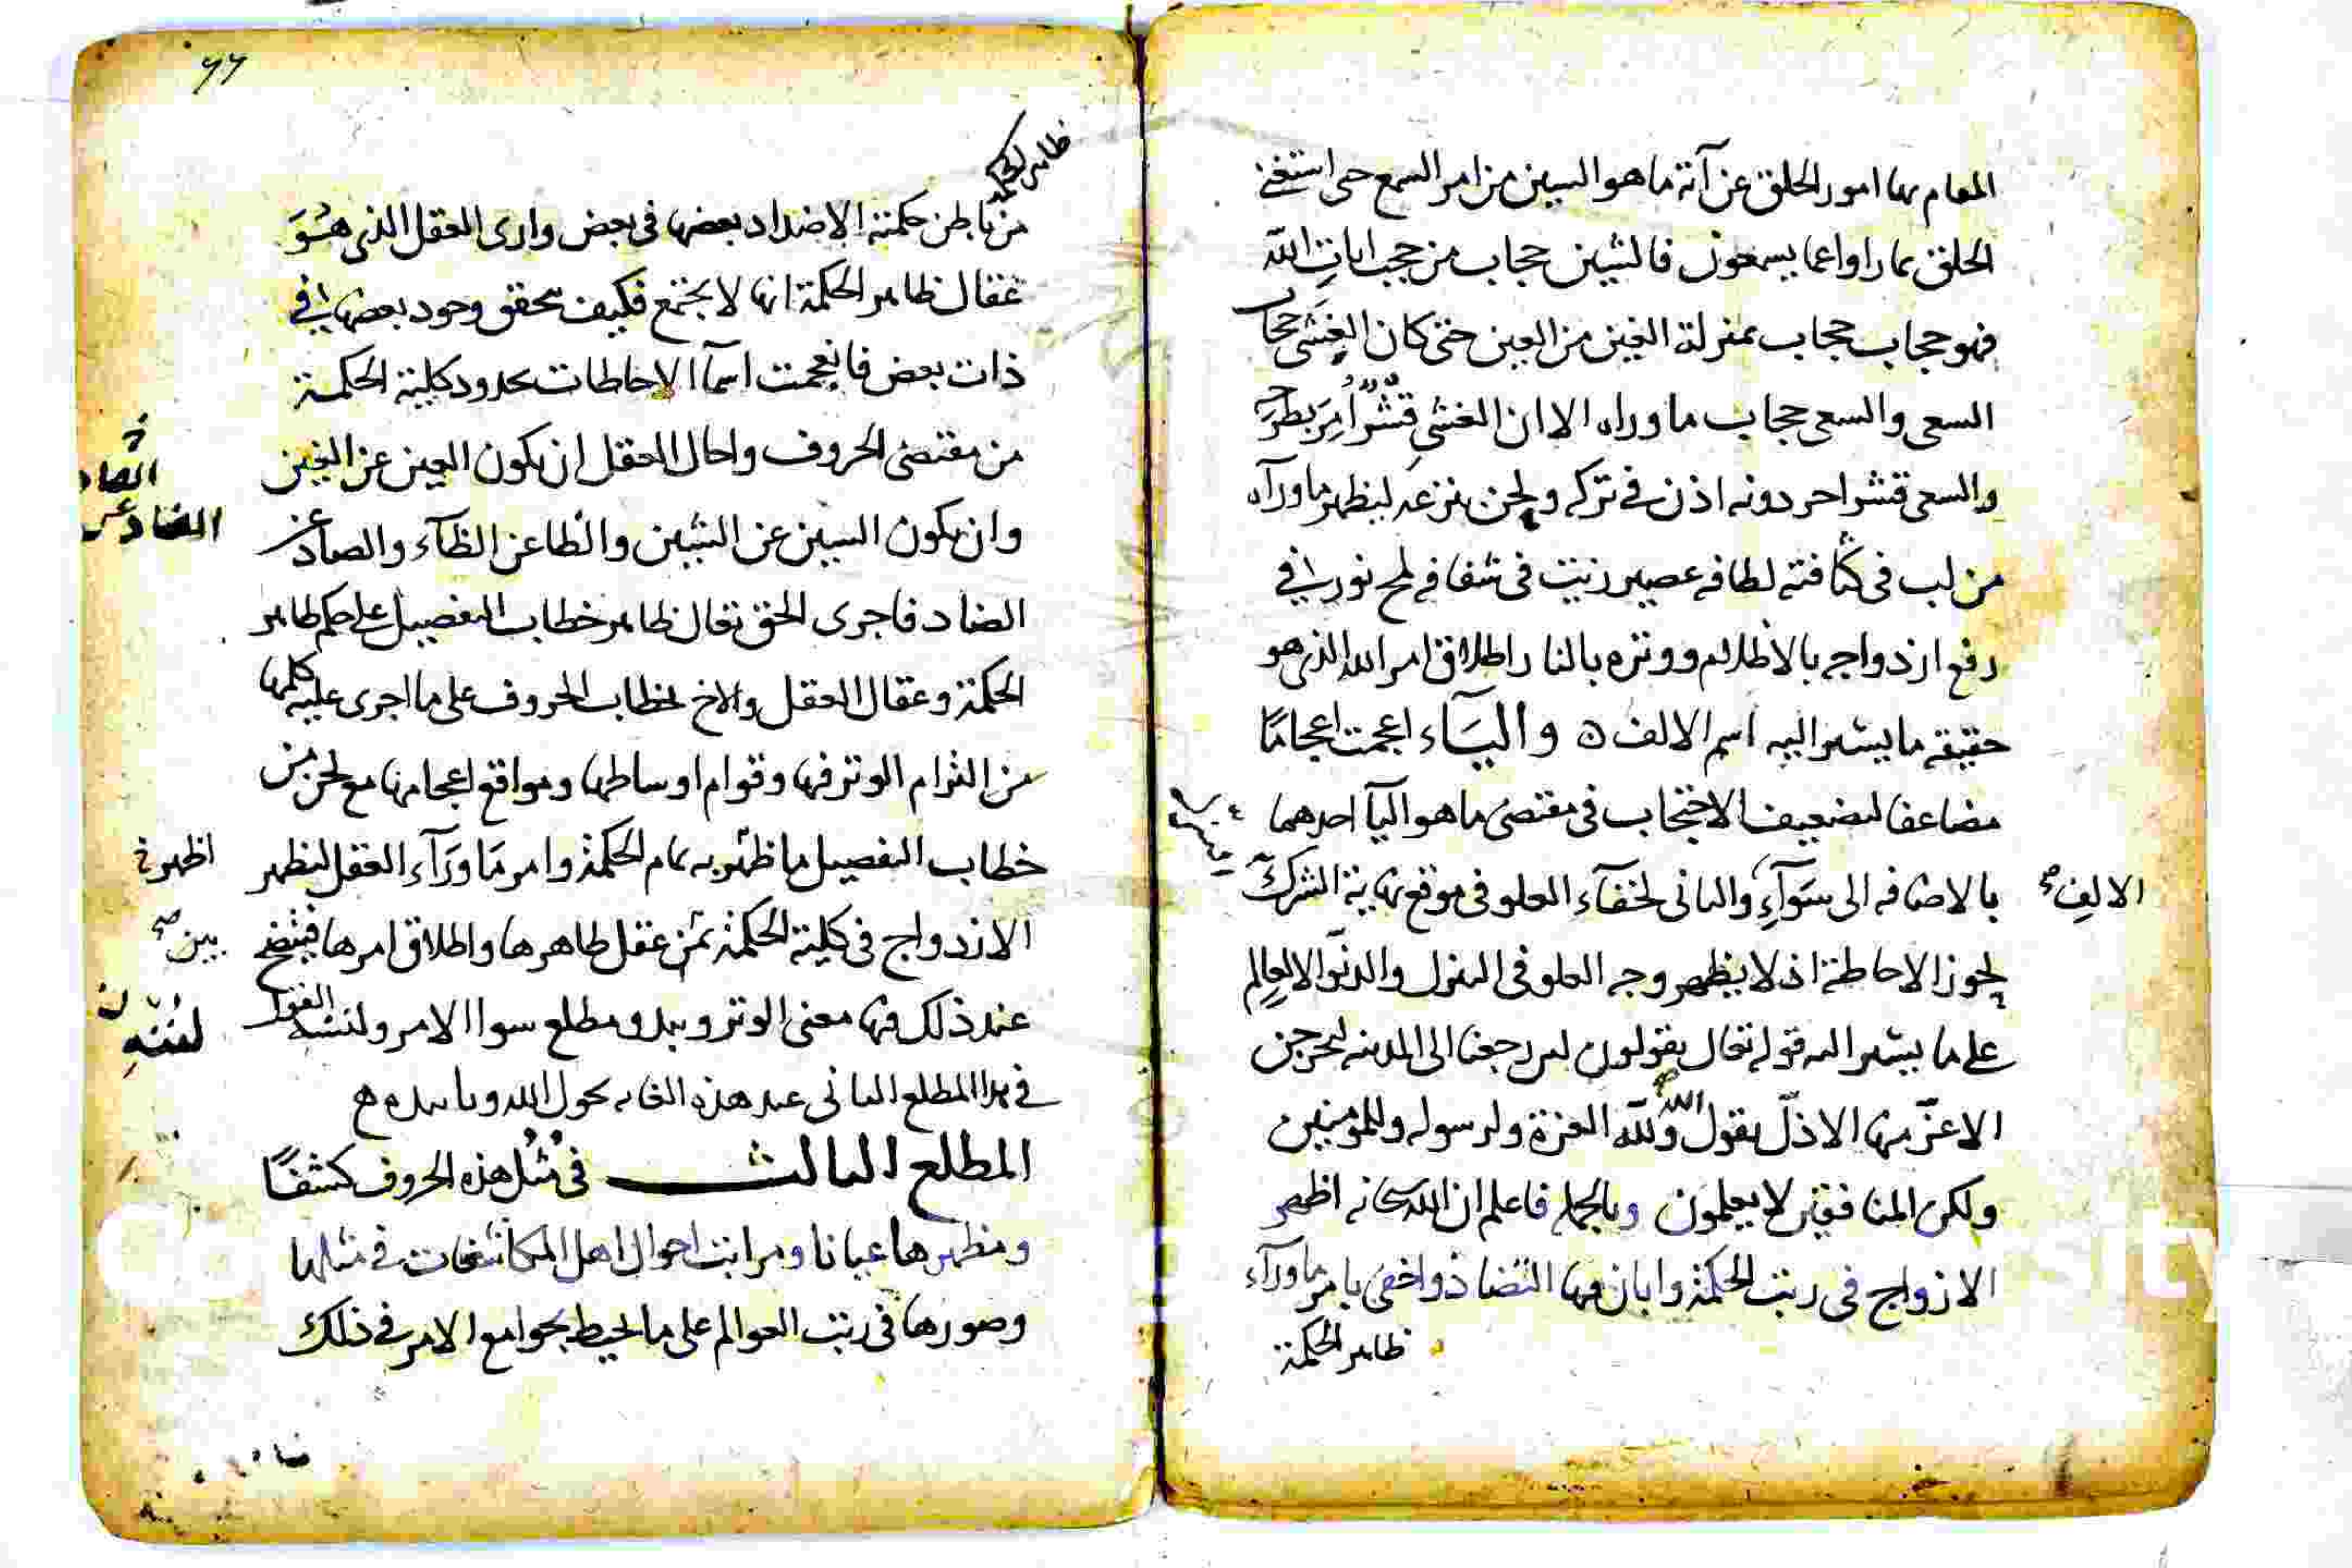 المقام بها امور الخلق عن آنة ما هو السين من امر السمع حى استغنى
الخلق بما راوا عما يسمعون فالشين حجاب من حجب ايات الله
فهو حجاب حجاب بمنزلة الغين من العين حتى كان الغشى حجاب
السعى والسعى حجاب ما وراه الا ان الغشى قشر امر بطرحه
والسعى قشر احر دونه اذن فى تركه ولحن بنزعه ليظهر ما ورآه
من لب فى كثافته لطافه عصير زيت فى شفافه لمح نور فى
رفع ازدواجه بالاظلام ووتره بالنار اطلاق امر الله الذى هو
حقيقه ما يشير اليه اسم الالف ه والياء اعجمت اعجاما
مضاعفا لتضعيف الاحتجاب فى مقتضى ما هو اليآ احدهما
بالاضافه الى سوآء والثانى لخفآء العلو فى موقع نهاية الشرك
الالف صح
لحوز الاحاطة اذ لا يظهر وجه العلو فى التنزل والدنو الا لعالم
على ما يشير اليه قوله تعال يقولون لين رجعنا الى المدينه ليخرجن
الاعز منها الاذل يقول الله ولله العزة ولرسوله وللمومنين
ولكن المنافقين لا يعلمون وبالجمله فاعلم ان الله سبحانه اظهر
الازواج فى رتبت الحكمة وابان فيها التضاد واخفى بامر ما ورآء
ظاهر الحكمة
٧٧
ظاهر الحكمة
من باطن حكمته الاضداد بعضها فى بعض وارى العقل الذى هو
عقال ظاهر الحكمة انها لا يجتمع فكيف تحقق وجود بعضها فى
ذات بعض فانعجمت اسمآ الاحاطات بحدود كلية الحكمة
من مقتضى الحروف واحال العقل ان يكون العين عن الغين
وان يكون السين عن الشين والطا عن الظآء والصاد عن
الصاد
الضاد عن
الضاد فاجرى الحق تعال ظاهر خطاب التفصيل على حكم ظاهر
الحكمة وعقال العقل والاخ بخطاب الحروف على ما اجرى عليه كلمها
من التزام الوتر فيها وقوام اوساطها ومواقع اعجامها مع لحن من
خطاب التفصيل ما ظهر به تمام الحكمة وامر ما ورآء العقل ليظهر
اظهر
الازدواج فى كلية الحكمة بمن عقل ظاهرها واطلاق امرها فيتضح
بين صح
عند ذلك فيها معنى الوتر ويبدو مطلع سوا الامر ولننشه القول
فى هذا المطلع الثانى عند هذه الغايه بحول الله وتاييده
المطلع الثالث فى مثل هذه الحروف كشفا
ومظهرها عيانا ومراتب احوال اهل المكاشفات فى مثلها
وصورها فى رتب العوالم على ما يحيط بجوامع الامر فى ذلك